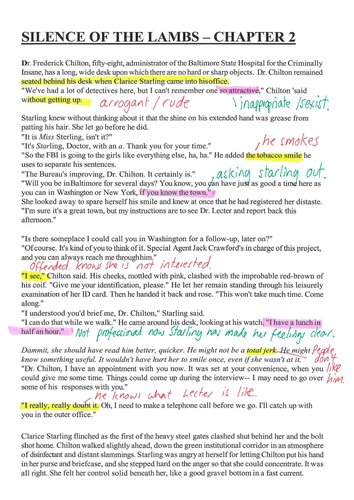 SILENCE OF THE LAMBS – CHAPTER 2
Dr. Frederick Chilton, fifty-eight, administrator of the Baltimore State Hospital for the Criminally
Insane, has a long, wide desk upon which there are no hard or sharp objects. Dr. Chilton remained
seated behind his desk when Clarice Starling came into his office.
"We've had a lot of detectives here, but I can't remember one so attractive," Chilton 'said
without getting up.
arrogant / rude
inappropriate / sexist.
Starling knew without thinking about it that the shine on his extended hand was grease from
patting his hair. She let go before he did.
"It is Miss Sterling, isn't it?"
"It's Starling, Doctor, with an a. Thank you for your time."
he smokes
"So the FBI is going to the girls like everything else, ha, ha." He added the tobacco smile he
uses to separate his sentences.
"The Bureau's improving, Dr. Chilton. It certainly is."
asking starling out.
"Will you be inBaltimore for several days? You know, you can have just as good a time here as
you can in Washington or New York, if you know the town."
She looked away to spare herself his smile and knew at once that he had registered her distaste.
"I'm sure it's a great town, but my instructions are to see Dr. Lecter and report back this
afternoon."
"Is there someplace I could call you in Washington for a follow-up, later on?"
"Of course. It's kind of you to think of it. Special Agent Jack Crawford's in charge of this project,
and you can always reach me throughhim."
Offended. knows she is not interested.
"I see," Chilton said. His cheeks, mottled with pink, clashed with the improbable red-brown of
his coif. "Give me your identification, please." He let her remain standing through his leisurely
examination of her ID card. Then he handed it back and rose. "This won't take much time. Come
along."
"I understood you'd brief me, Dr. Chilton," Starling said.
"I can do that while we walk." He came around his desk, looking at his watch. "I have a lunch in
half an hour."
Not professional now Starling has made her feeling clear.
Dammit, she should have read him better, quicker. He might not be a total jerk. He might
know something useful. It wouldn't have hurt her to smile once, even if she wasn't at it.
People don't like him.
"Dr. Chilton, I have an appointment with you now. It was set at your convenience, when you
could give me some time. Things could come up during the interview-- I may need to go over
some of his responses with you."
he knows what Lecter is like.
"I really, really doubt it. Oh, I need to make a telephone call before we go. I'll catch up with
you in the outer office."
Clarice Starling flinched as the first of the heavy steel gates clashed shut behind her and the bolt
shot home. Chilton walked slightly ahead, down the green institutional corridor in an atmosphere
of disinfectant and distant slammings. Starling was angry at herself for letting Chilton put his hand
in her purse and briefcase, and she stepped hard on the anger so that she could concentrate. It was
all right. She felt her control solid beneath her, like a good gravel bottom in a fast current.